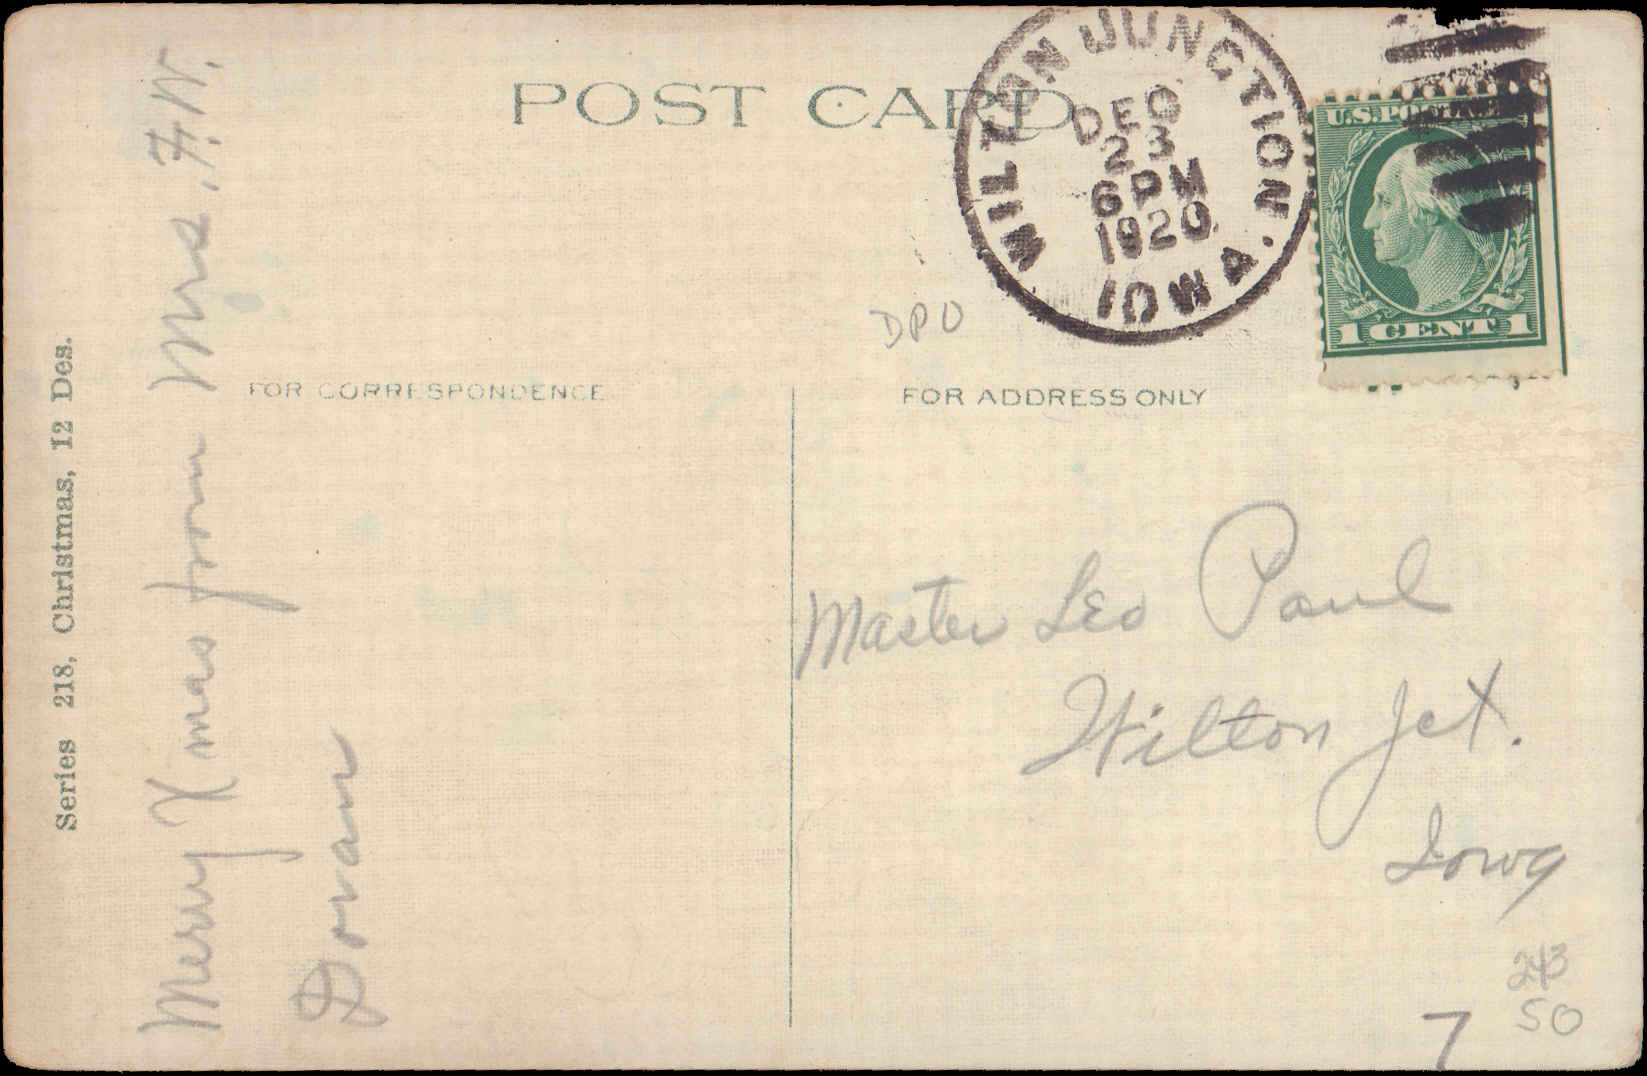 POST CARD
WILTON JUNCTION
DEC
23
6 PM
1920
IOWA.
U.S. POSTAGE
1 CENT 1
DPO
FOR CORRESPONDENCE
FOR ADDRESS ONLY
Series 218, Christmas, 12 Des.
Merry Xmas from Mrs. F. W.
Doran
Master Leo Paul
Wilton Jct.
Iowa
243
50
7